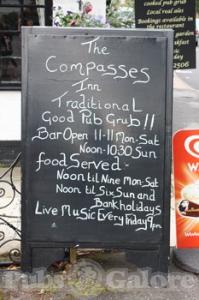 cooked pub food
Local real ales
Booking available in
the restaurant
2506
The
Compasses
Inn
Traditional
Good Pub Grub!!
Bar Open 11-11 Mon-Sat
Noon-10:30 Sun
food Served -
Noon til Nine Mon-Sat
Noon til Six Sun and
Bank holidays
Live Music Every Friday 9pm
Pubs Galore